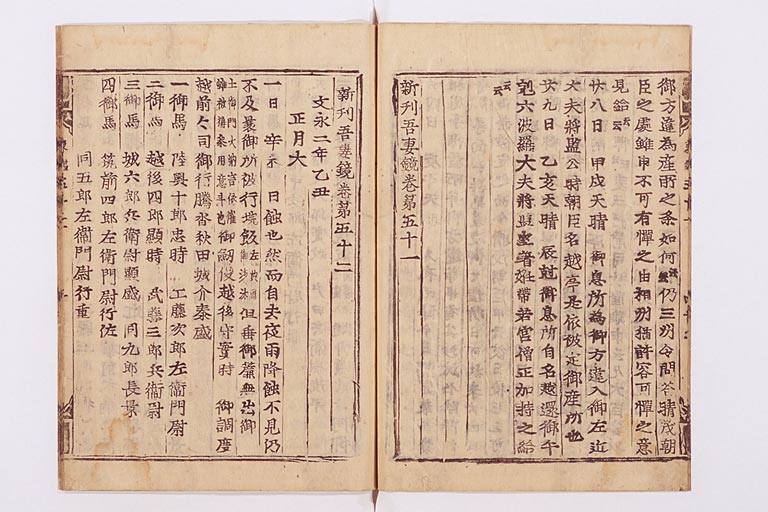 御方違為産所之条如何云々仍三州令問答晴茂朝
臣之處雖申不可有憚之由相州猶許容可憚之意
見給云々
廿八日甲戌天晴御息所為御方違入御左近
大夫将監公時朝臣名越亭是依被定御産所也
廿九日乙亥天晴辰尅御息所自名越還御午
尅六波羅大夫将監著姙帯若宮僧正加持之給
云々
新刊吾妻鏡卷第五十一
新刊吾妻鏡卷第五十二
文永二年乙丑
正月大
一日辛未日蝕也然而自去夜雨降蝕不見仍
不及裹御所被行垸飯左典厩御沙汰但垂御簾無出御
土御門大納言依催御剱後越後守實時御調度
越前々司御行騰沓秋田城介泰盛
一御馬陸奥十郎忠時工藤次郎左衛門尉
二御馬越後四郎顕時武藤三郎兵衛尉
三御馬城六郎兵衛尉顕盛同九郎長景
四御馬筑前四郎左衛門尉行佐
同五郎左衛門尉行重